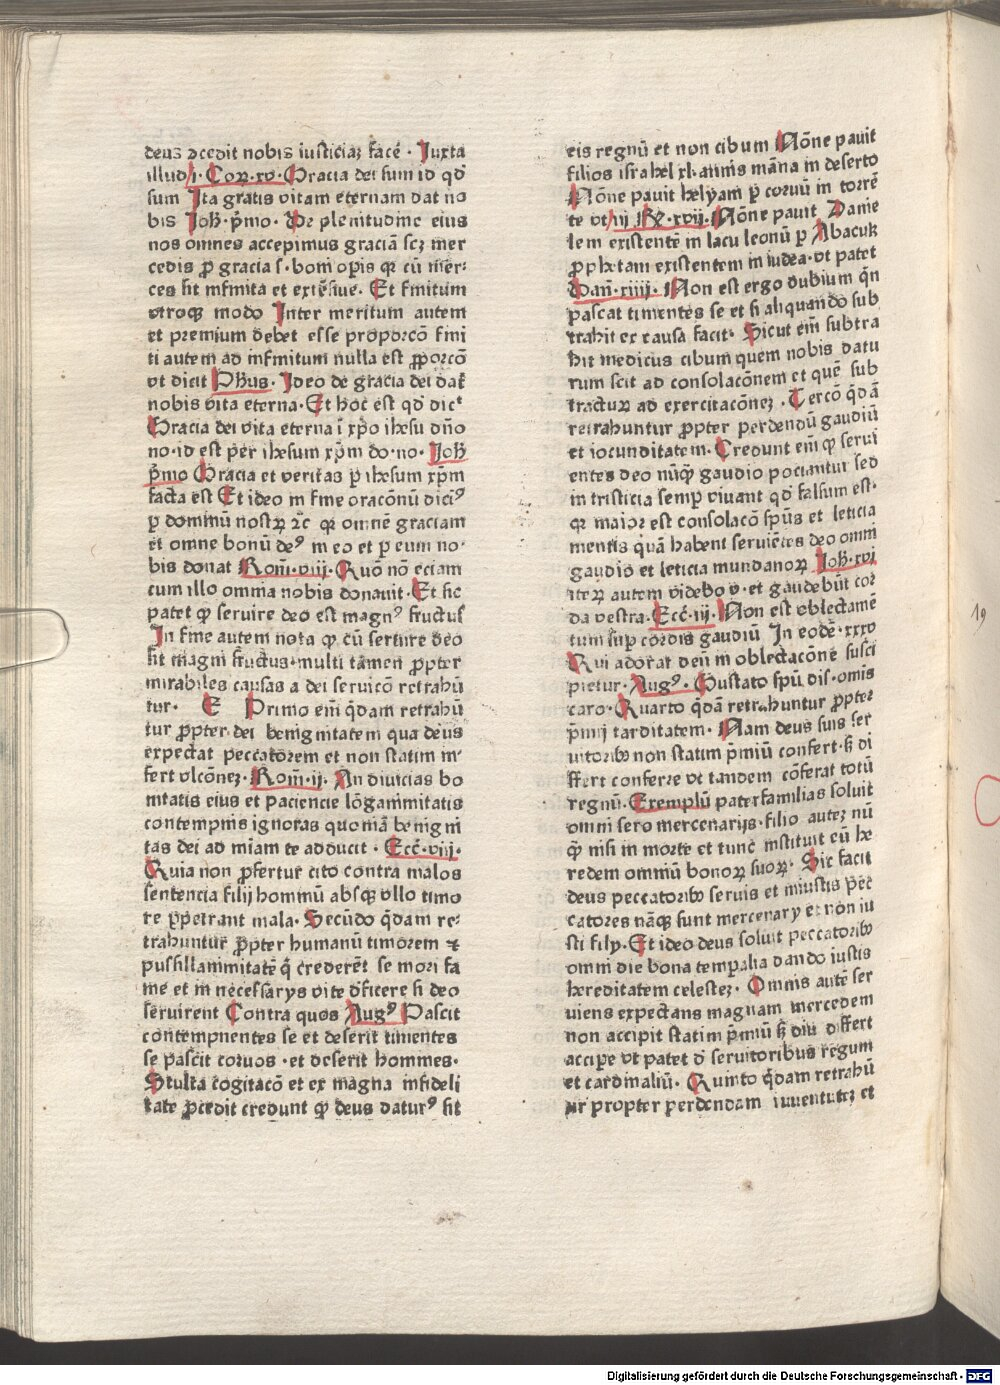 deus ꝯcedit nobis iusticiaꝫ facẽ · Iuxta
illud i · Coꝝ · xv · Gracia dei sum id qd̕
sum Ita gratis vitam eternam dat no
bis Joh̕ · p̃mo · De plenitudine eius
nos omnes accepimus graciã scꝫ mer
cedis ꝓ gracia s · boni oꝑis qꝛ cũ mer⸗
ces sit infinita et extẽsiue · Et finitum
vtroqꝫ modo Inter meritum autem
et premium debet esse proporcõ fini
ti autem ad infinitum nulla est ꝓporcõ
vt dicit Ph̕us · Ideo de gracia dei dat̕
nobis vita eterna · Et hoc est qd̕ dict̕
Gracia dei vita eterna ĩ xp̃o ih̕esu dño
no · id est per ih̕esum xp̃m do · no · Joh̕
p̃mo Gracia et veritas ꝑ ih̕esum xp̃m
facta est Et ideo in fine oracõnũ diciꝰ
ꝑ dominũ nostꝝ ⁊c̃ qꝛ omnẽ graciam
et omne bonũ deꝰ in eo et ꝑ eum no⸗
bis donat Rom̃ · viij · Quõ nõ eciam
cum illo omnia nobis donauit · Et sic
patet ꝙ seruire deo est magnꝰ fructus
In fine autem nota ꝙ cũ seruire deo
sit magni fructus · multi tamen ꝓpter
mirabiles causas a dei seruicõ retrahũ
tur · E Primo em̃ q̃dam retrahũ
tur ꝓpter dei benignitatem qua deus
expectat peccatorem et non statim in⸗
fert vlcõneꝫ · Rom̃ · ij · An diuicias bo
nitatis eius et paciencie lõganimitatis
contempnis ignoras quoniã benigni
tas dei ad pñiam te adducit · Ecc̃ · viij ·
Quia non ꝓfertur cito contra malos
sentencia filij hominũ absqꝫ vllo timo
re ꝑpetrant mala · Secũdo q̃dam re⸗
trahuntur ꝓpter humanũ timorem ⁊
pusillanimitatẽ q̃ crederẽt se mori fa
me et in necessarys vite deficere si deo
seruirent Contra quos Augꝰ Pascit
contempnentes se et deserit timentes
se pascit coruos · et deserit homines ·
Stulta cogitacõ et ex magna infideli
tate ꝓcedit credunt ꝙ deus daturꝰ sit
eis regnũ et non cibum Nõne pauit
filios israhel xl · annis mãna in deserto
Nõne pauit helyam ꝑ coruũ in torrẽ
te vt iij Rg̃ · xvij · Nõne pauit Danie
lem existentẽ in lacu leonũ ꝑ Abacuk
ꝓphetam existentem in iudea · vt patet
Dañ · xiiij · Non est ergo dubium q̃n
pascat timentes se et si aliquando sub
trahit ex causa facit · Sicut em̃ subtra
hit medicus cibum quem nobis datu
rum scit ad consolacõnem et quẽ sub
tracturꝝ ad exercitacõneꝫ · Tercõ q̃dã
retrahuntur ꝓpter perdendũ gaudiũ
et iocunditatem · Credunt em̃ ꝙ serui
entes deo nũqꝫ gaudio pociantur sed
in tristicia semꝑ viuant qd̕ falsum est ·
qꝛ maior est consolacõ sp̃us et leticia
mentis quã habent seruiẽtes deo omni
gaudio et leticia mundanoꝝ Joh̕ · xvi
iteꝝ autem videbo v · et gaudebũt cor
da vestra · Ecc̃ · iij · Non est oblectamẽ
tum suꝑ cordis gaudiũ In eodẽ · xxxv
Qui adorat deũ in oblectacõne susci
pietur · Augꝰ · Gustato sp̃u dis · omĩs
caro · Quarto q̃dã retrahuntur ꝓpter
p̃mij tarditatem · Nam deus suis ser
uitoribꝫ non statim p̃miũ confert · sꝫ di
ffert conferre vt tandem cõferat totũ
regnũ · Exemplũ paterfamilias soluit
omni sero mercenarijs · filio auteꝫ nũ
qꝫ nisi in morte et tunc instituit eũ he
redem omniũ bonoꝝ suoꝝ · Sic facit
deus peccatoribꝫ seruis et iniustis pec̃
catores nãqꝫ sunt mercenary et non iu
sti fily · Et ideo deus soluit peccatoribꝫ
omni die bona temꝑalia dando iustis
hereditatem celesteꝫ · Omnis autẽ ser
uiens expectans magnam mercedem
non accipit statim p̃miũ sꝫ diu differt
acciꝑe vt patet de seruitoribus regum
et cardinaliũ · Quinto q̃dam retrahũ
ur propter perdendam iuuentuteꝫ et
19
Digitalisierung gefördert durch die Deutsche Forschungsgemeinschaft - DFG